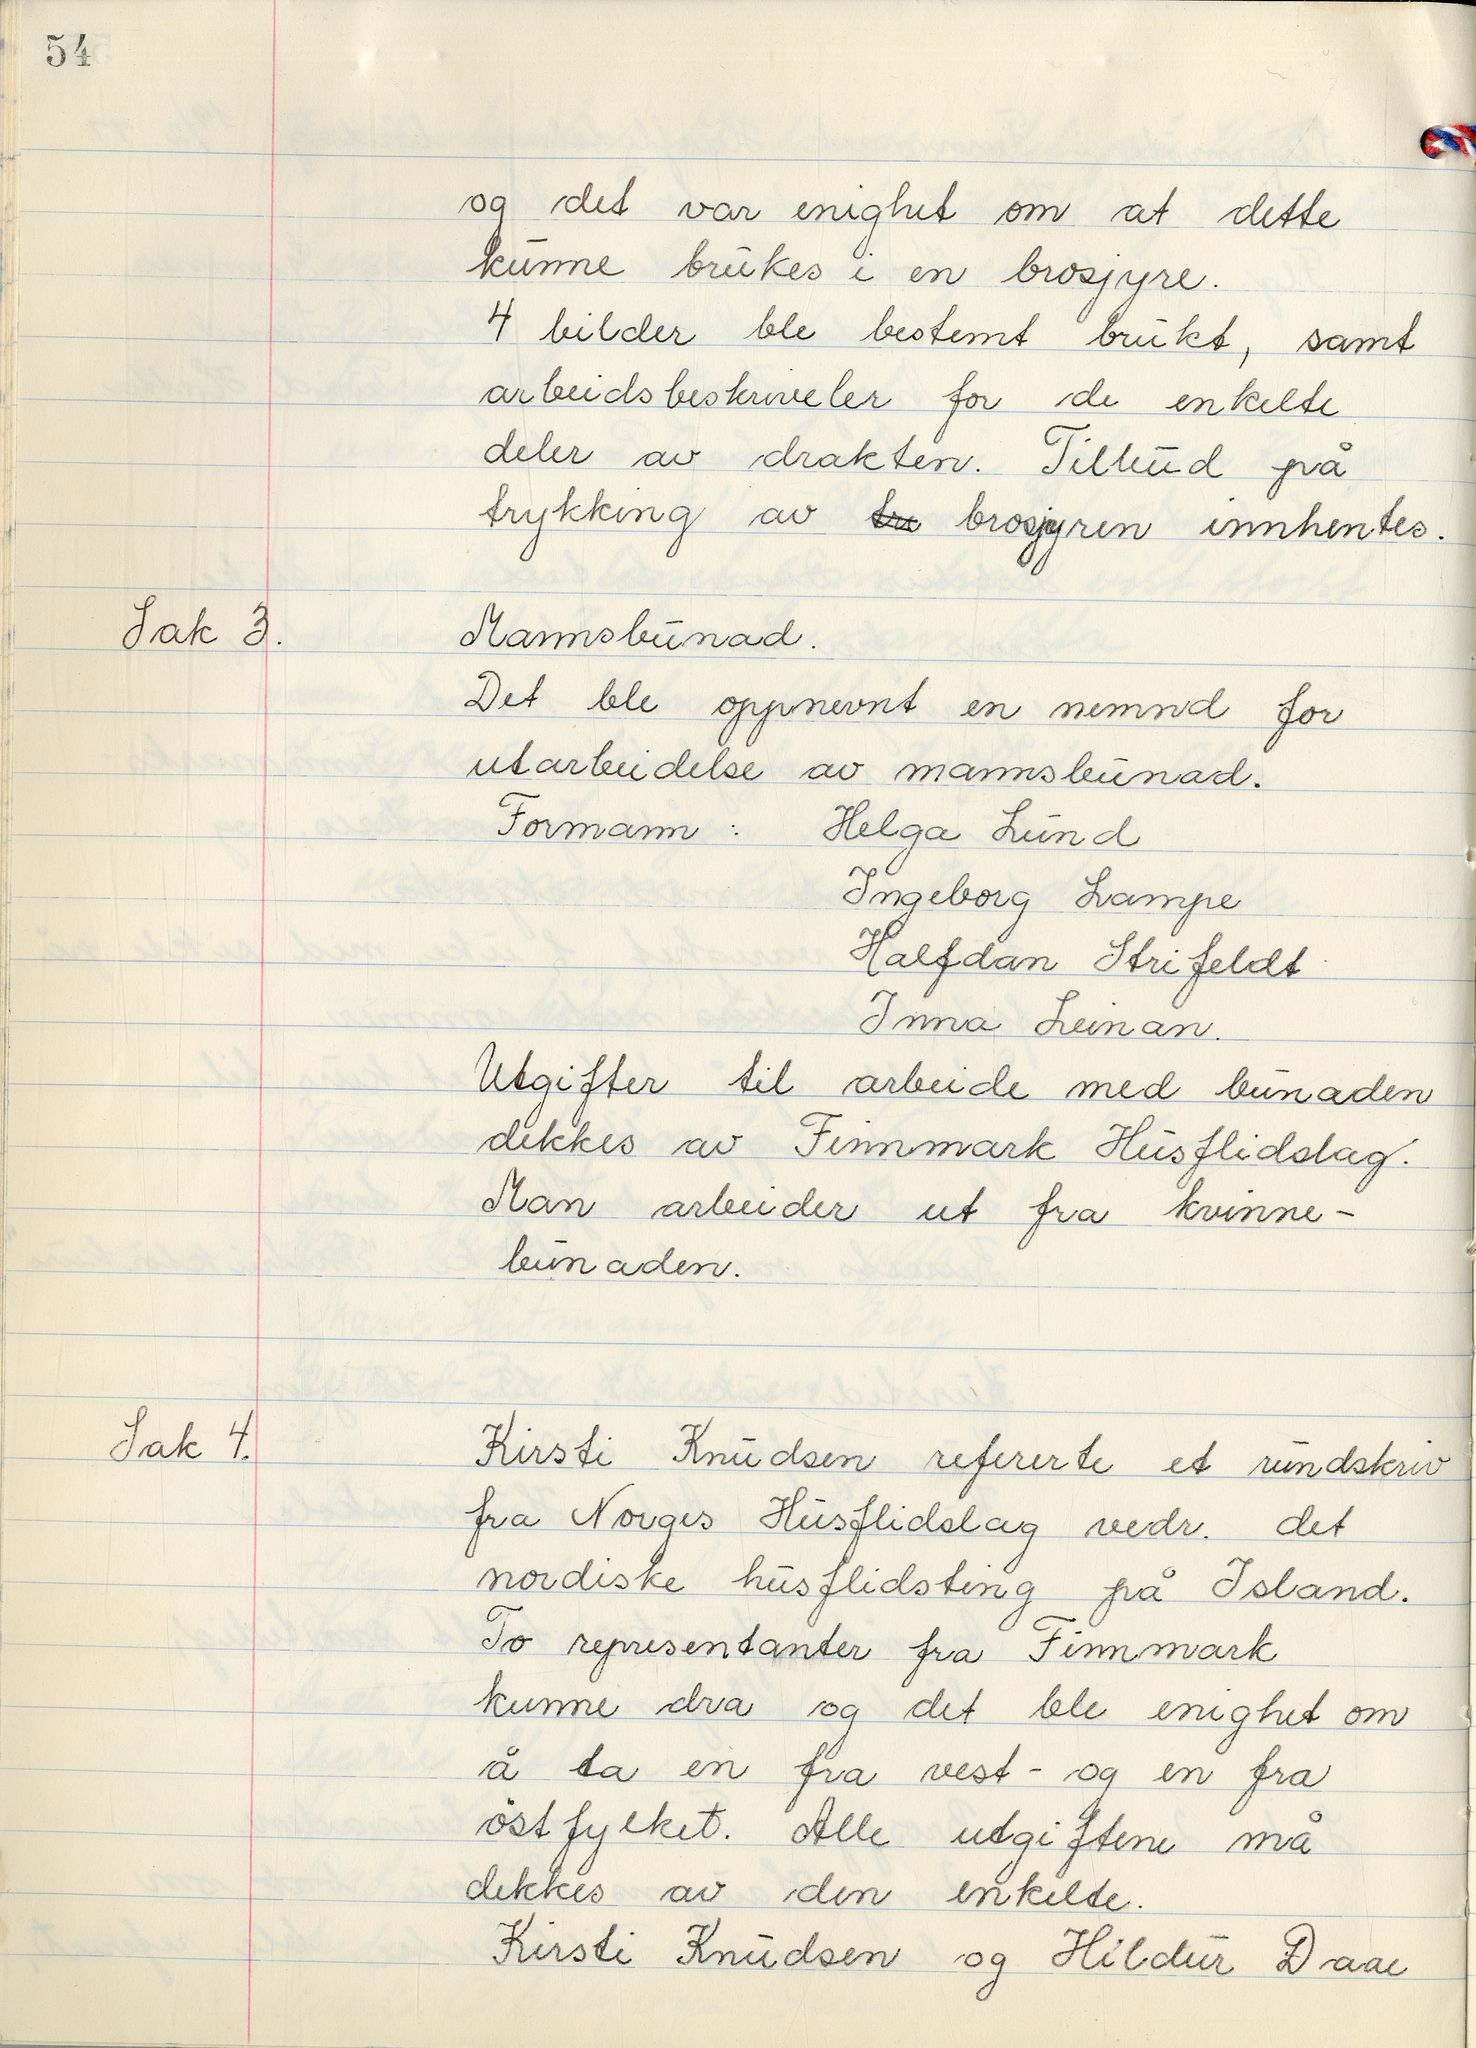 54
og det var enighet om at dette
kunne brukes i en brosjyre.
4 bilder ble bestemt brukt, samt
arbeidsbeskriveler for de enkelte
deler av drakten. Tilbud på
trykking av tre brosjyren innhentes.
Sak 3. Mannsbunad.
Det ble oppnevnt en nemnd for
utarbeidelse av mannsbunad.
Formann : Helga Lund
Ingeborg Lampe
Halfdan Strifeldt
Inna Leinan.
Utgifter til arbeide med bunaden
dekkes av Finnmark Husflidslag.
Man arbeider ut fra kvinne-
bunaden.
Sak 4. Kirsti Knudsen refererte et rundskriv
fra Norges Husflidslag vedr. det
nordiske husflidsting på Island.
To representanter fra Finnmark
kunne dra og det ble enighet om
å ta en fra vest- og en fra
östfylket. Alle utgiftene må
dekkes av den enkelte.
Kirsti Knudsen og Hildur Daae